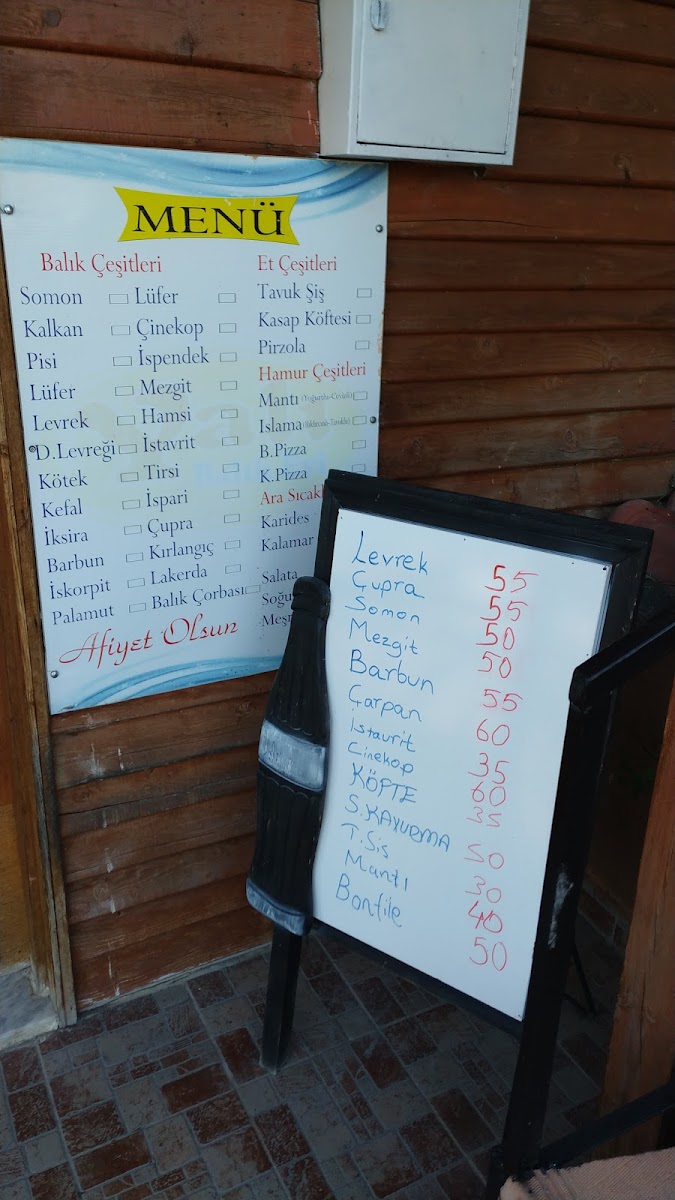 MENÜ
Balık Çeşitleri
Somon
Kalkan
Pisi
Lüfer
Levrek
D.Levreği
Kötek
Kefal
İksira
Barbun
İskorpit
Palamut
Lüfer
Çinekop
İspendek
Mezgit
Hamsi
İstavrit
Tirsi
İspari
Çupra
Kırlangıç
Lakerda
Balık Çorbası
Et Çeşitleri
Tavuk Şiş
Kasap Köftesi
Pirzola
Hamur Çeşitleri
Mantı (Yoğurtlu-Cevizli)
Islama
B.Pizza
K.Pizza
Ara Sıcakl
Karides
Kalamar
Salata
Soğu
Meşr
Afiyet Olsun
Levrek 55
Çupra 55
Somon 50
Mezgit 50
Barbun 55
Çarpan 60
Istavrit 35
Cinekop 60
KÖPTE 35
S.KAVURMA 50
T.Sis 30
Mantı 40
Bonfile 50